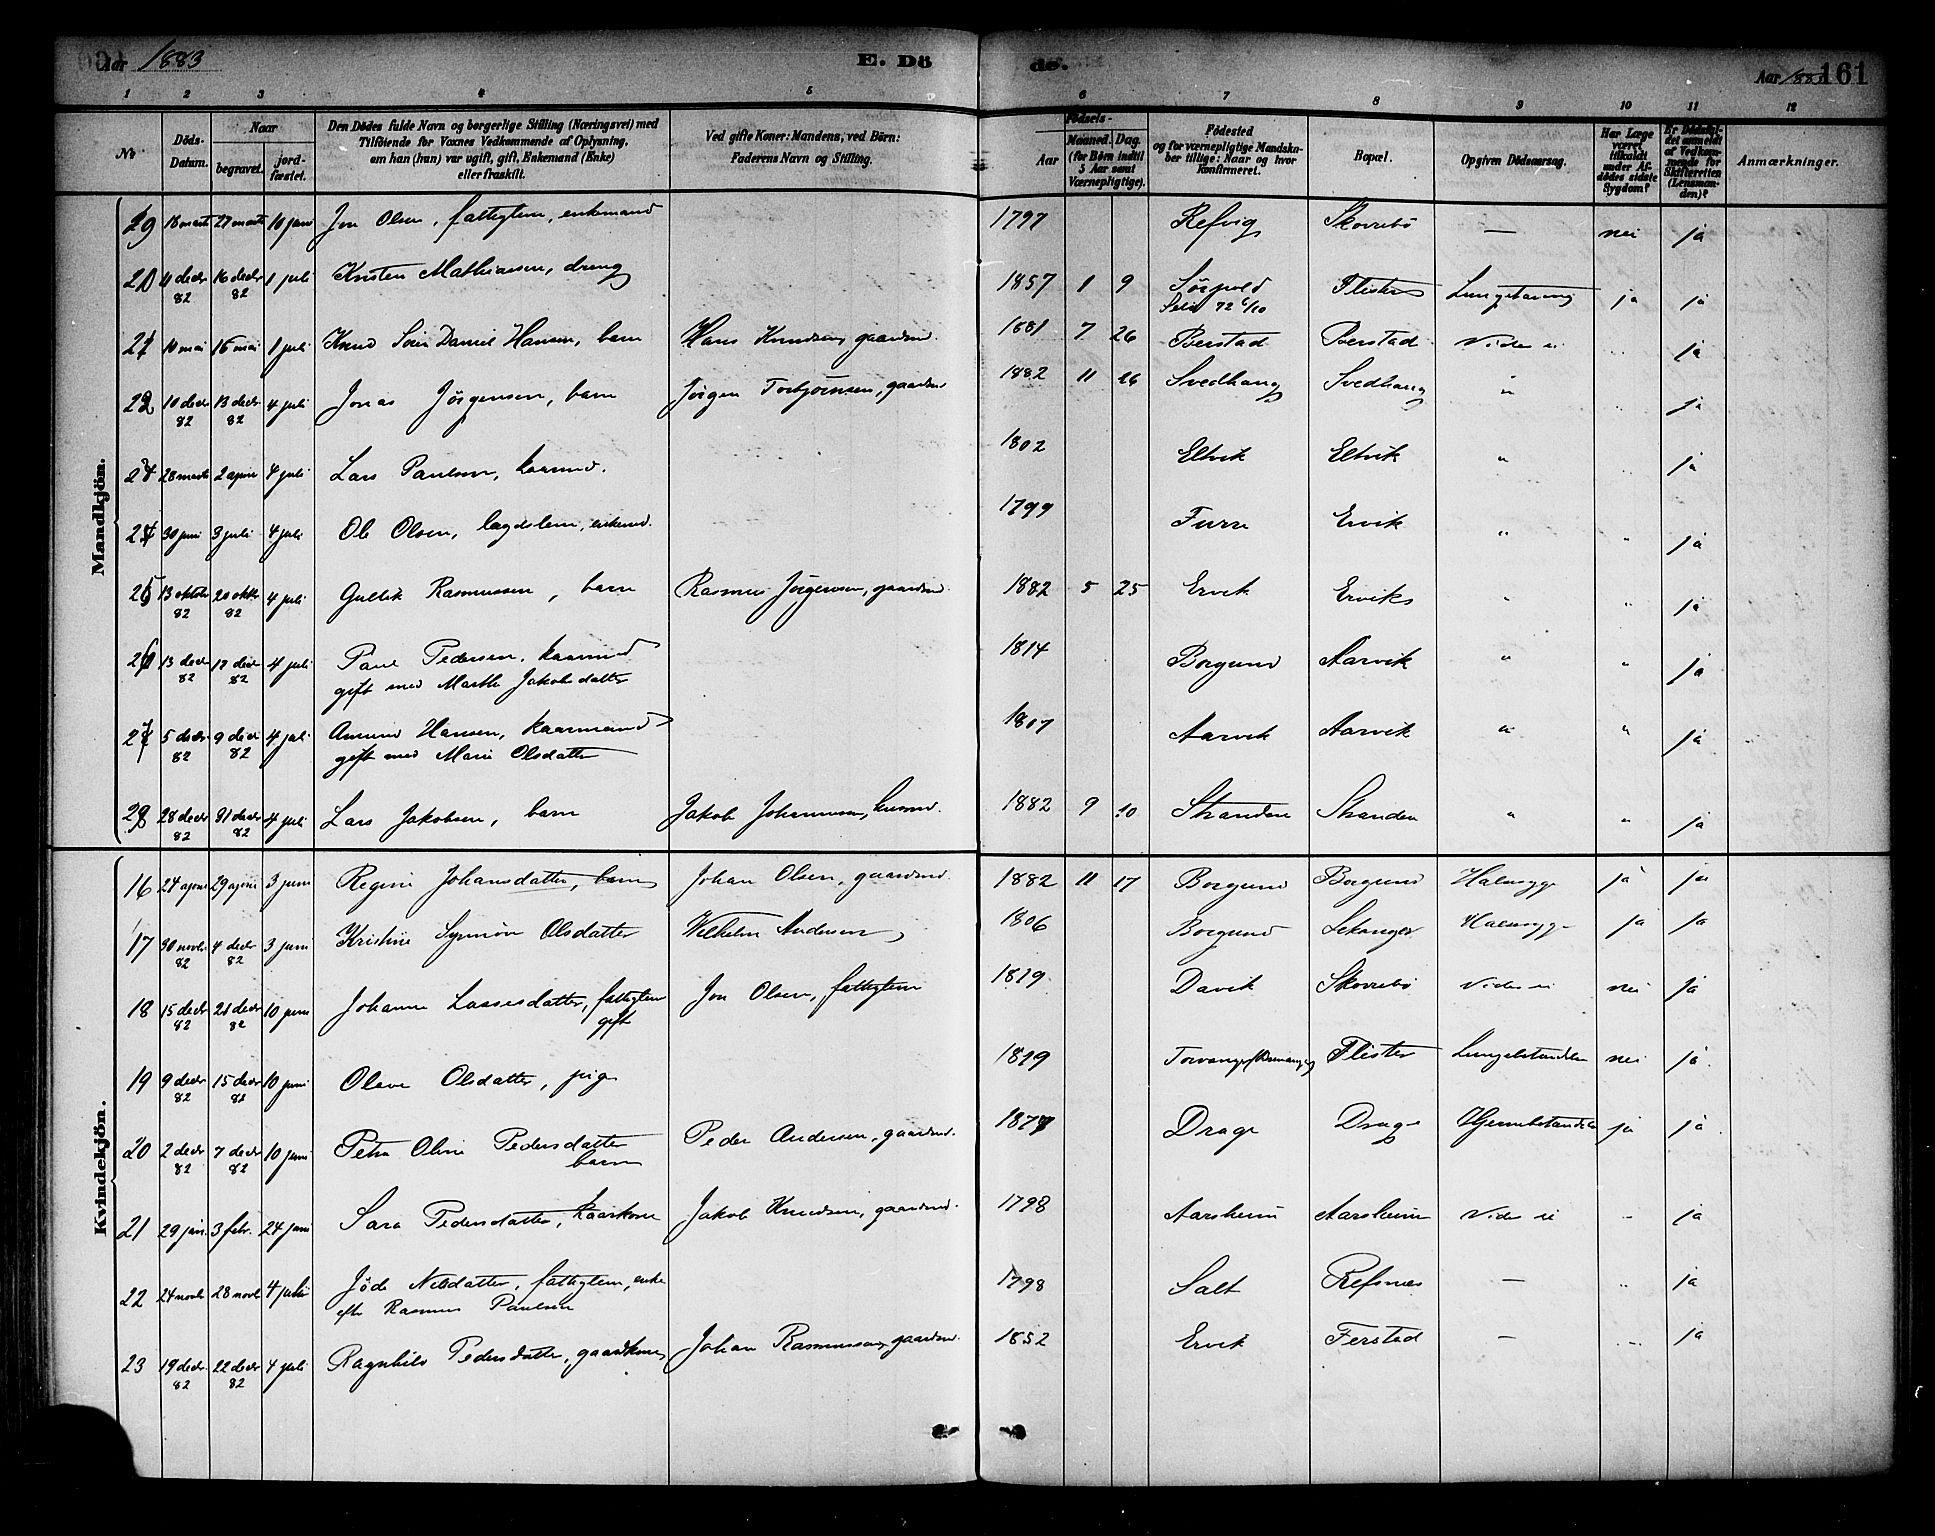 Aar 1883
E. Dö
de.
Aar 1883
161
1 2 3 4 5 6 7 8 9 10 11 12
No
Döds-Datum.
Naar
begravet.
jord-fæstet.
Den Dødes fulde Navn og borgerlige Stilling (Næringsvei) med
Tilföiende for Voxnes Vedkommende af Oplysning,
om han (hun) var ugift, gift, Enkemand (Enke)
eller fraskilt.
Ved gifte Koner: Mandens, ved Børn:
Faderens Navn og Stilling.
Födsels-
Aar
Maaned. Dag.
(for Børn indtil
5 Aar samt
Værnepligtige).
Födested
og for værnepligtige Mandska-
ber tillige: Naar og hvor
konfirmeret.
Bopæl.
Opgiven Dödsaarsag.
Har Læge
været
tilkaldt
under Af-
dödes sidste
Sygdom?
Er Dødsfal-
det anmeldt
af Vedkom-
mende for
Skifteretten
(Lensman-
den)?
Anmærkninger.
Mandkjön.
18 marts 27 marts 10 juni Jon Olsen, fattiglem, enkemand 1797 Refvig Skorrebö — nei ja
11 decbr 82 16 decbr 82 1 juli Kristen Mathiassen, dreng 1857 1 9 Flister ja ja
16 mai 1 juli Knud Daniel Hansen, barn Hans Knudsen, gaardmd. 1881 7 26 Berstad Berstad Vides ei ja
22 10 decbr 82 13 decbr 82 4 juli Jonas Jörgensen, barn Jørgen Torbjörnsen, gaardmd 1882 11 26 Svedhaug Svedhaug " ja
28 marts 2 april 4 juli Lars Paulsen, kaarmd. 1802 Eltvik Eltvik " ja
24 30 juni 3 juli 4 juli Ole Olsen, lægdslem, enkemd. 1799 Furre Ervik " " ja
25 13 oktbr 82 20 oktbr 82 4 juli Gullik Rasmussen, barn Rasmus Jörgensen, gaardmd. 1882 5 25 Ervik Ervik " " ja
26 13 decbr 82 17 decbr 82 4 juli Paul Pedersen, kaarmd
gift med Marthe Jakobsdatter 1814 Borgund Aarvik " " ja
27 5 decbr 82 9 decbr 82 4 juli Amund Hansen, kaarmand
gift med Marie Olsdatter 1807 Aarvik Aarvik " " ja
28 28 decbr 82 31 decbr 82 4 juli Lars Jakobsen, barn Jakob Johannessen, husmd. 1882 9 10 Stranden Stranden " " ja
Kvindekjön.
16 24 april 29 april 3 juni Regine Johansdatter, barn Johan Olsen, gaardmd. 1882 11 17 Borgund Borgund Halssyge ja ja
17 30 novbr 82 4 decbr 82 3 juni Kristine Synnöv Olsdatter Vilhelm Andersen, 1806 Borgund Lekanger Halssyge ja ja
18 15 decbr 82 21 decbr 82 10 juni Johanne Lassesdatter, fattiglem
gift Jon Olsen, fattiglem 1819 Davik Skorrebö Vides ei nei ja
19 9 decbr 82 15 decbr 82 10 juni Olave Olsdatter, pige 1819 Flister Lungebetændelse nei ja
20 2 decbr 82 7 decbr 82 10 juni Petra Oline Pedersdatter
barn Peder Andersen, gaardmd. Drage Drage Hjernebetændelse ja ja
21 29 jan. 3 febr. 24 juni Sara Pedersdatter, kaarkone Jakob Knudsen, gaardmd. 1798 Aarsheim Aarsheim Vides ei " ja
22 24 novbr 28 novbr 4 juli Jöde Nilsdatter, fattiglem, enke
efter Rasmus Paulsen 1798 Salt Refsnes — " ja
23 19 decbr 82 22 decbr 82 4 juli Ragnhild Pedersdatter, gaardkone Johan Rasmussen, gaardmd. 1852 Ervik Ferstad — " ja